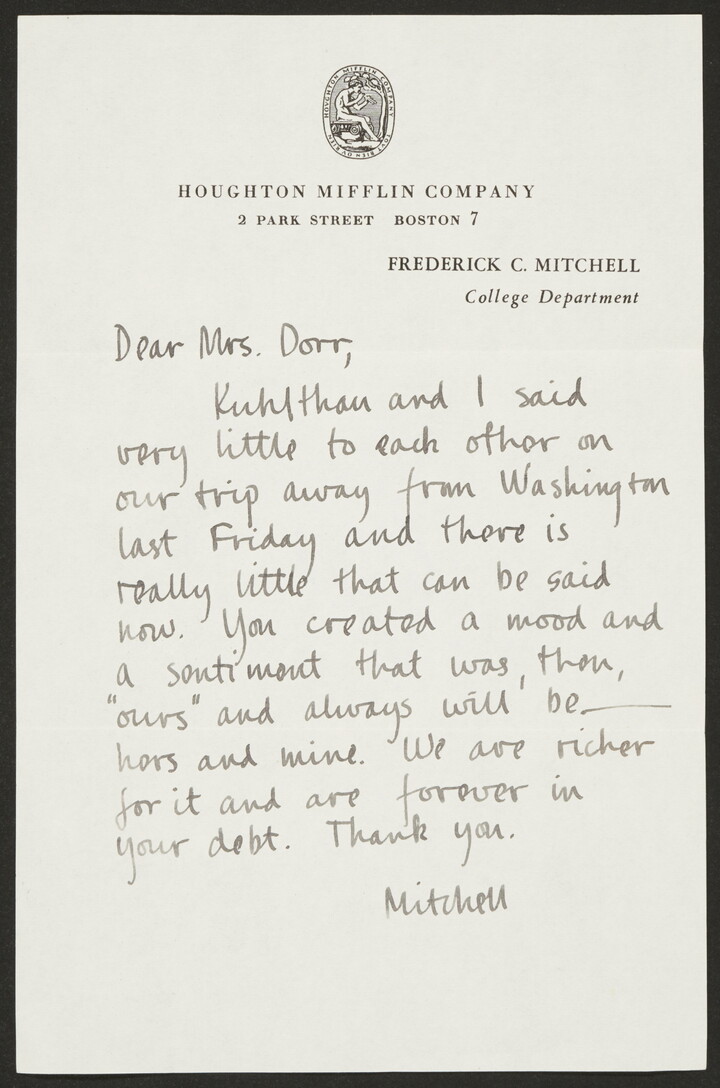 HOUGHTON MIFFLIN COMPANY
TOVT BIEN OV RIEN
HOUGHTON MIFFLIN COMPANY
2 PARK STREET BOSTON 7
FREDERICK C. MITCHELL
College Department
Dear Mrs. Dorr,
and I said
very little to each other on
our trip away from Washington
last Friday and there is
really little that can be said
now. You created a mood and
a sentiment that was, then,
"ours" and always will be—
hers and mine. We are richer
for it and are forever in
your debt. Thank you.
Mitchell